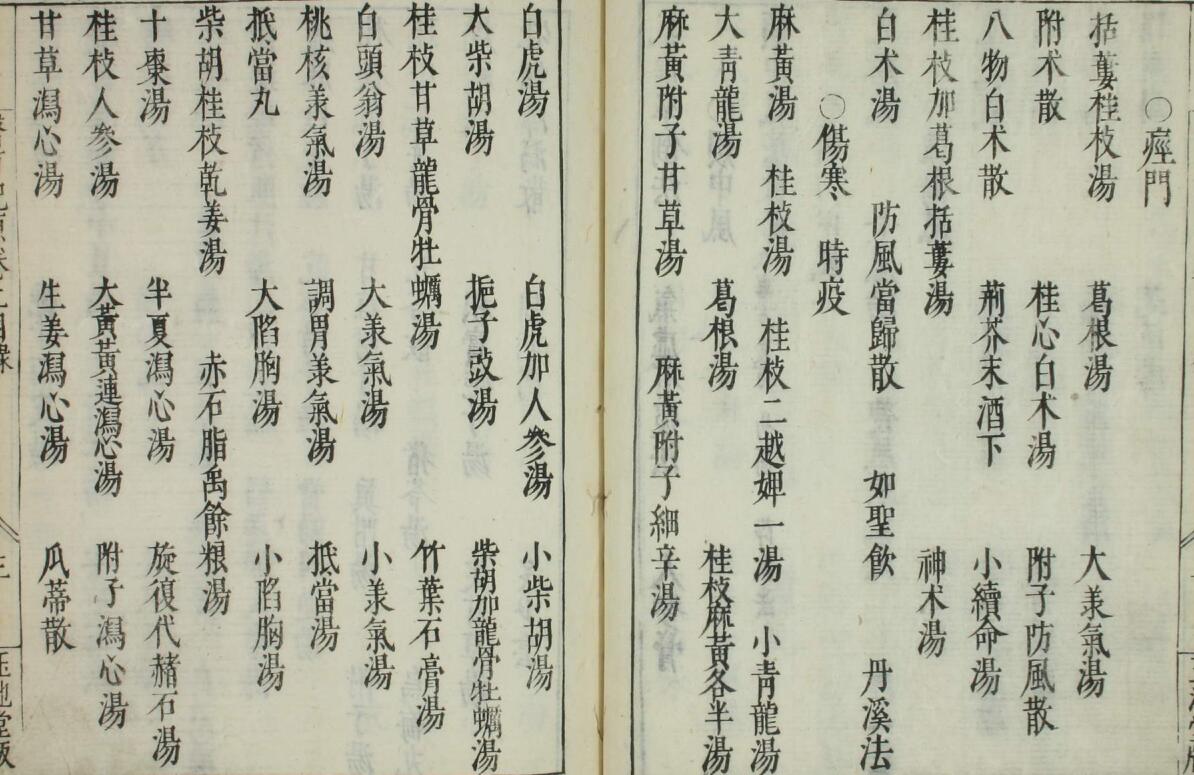 ○痙門
栝蔞桂枝湯 葛根湯 大承氣湯
附术散 桂心白术湯 附子防風散
八物白术散 荊芥末酒下 小續命湯
桂枝加葛根栝蔞湯 神术湯
白术湯 防風當歸散 如聖飲 丹溪法
○傷寒 時疫
麻黃湯 桂枝湯 桂枝二越婢一湯 小靑龍湯
大靑龍湯 葛根湯 桂枝麻黃各半湯
麻黃附子甘草湯 麻黃附子細辛湯
白虎湯 白虎加人參湯 小柴胡湯
大柴胡湯 梔子豉湯 柴胡加龍骨牡蠣湯
桂枝甘草龍骨牡蠣湯 竹葉石膏湯
白頭翁湯 大承氣湯 小承氣湯
桃核承氣湯 調胃承氣湯 抵當湯
抵當丸 大陷胸湯 小陷胸湯
柴胡桂枝乾姜湯 赤石脂禹餘粮湯
十棗湯 半夏瀉心湯 旋復代赭石湯
桂枝人參湯 大黃黃連瀉心湯 附子瀉心湯
甘草瀉心湯 生姜瀉心湯 瓜蒂散